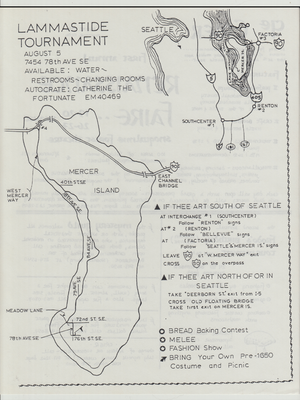 LAMMASTIDE
TOURNAMENT
AUGUST 5
7454 78th AVE SE
AVAILABLE: WATER~
RESTROOMS~CHANGING ROOMS
AUTOCRATE: CATHERINE THE
FORTUNATE EM 40469
SEATTLE
FACTORIA
#3
MERCER IS.
405
RENTON
#2
SOUTHCENTER
#1
#4
MERCER
ISLAND
40th ST. SE
EAST
CHANNEL
BRIDGE
WEST
MERCER
WAY
MEADOW LANE
72nd ST. SE.
78th AVE SE
76th ST. SE.
▲ IF THEE ART SOUTH OF SEATTLE
AT INTERCHANGE #1 (SOUTHCENTER)
Follow "RENTON" signs
AT #2 (RENTON)
Follow "BELLEVUE" signs
AT (FACTORIA)
Follow "SEATTLE & MERCER IS" signs
LEAVE 90 at "W. MERCER WAY" exit
CROSS 90 on the overpass
▲ IF THEE ART NORTH OF OR IN
SEATTLE
TAKE "DEERBORN ST." exit from I-5
CROSS OLD FLOATING BRIDGE
TAKE first exit on MERCER IS.
BREAD Baking Contest
MELEE
FASHION Show
BRING Your Own Pre-1650
Costume and Picnic